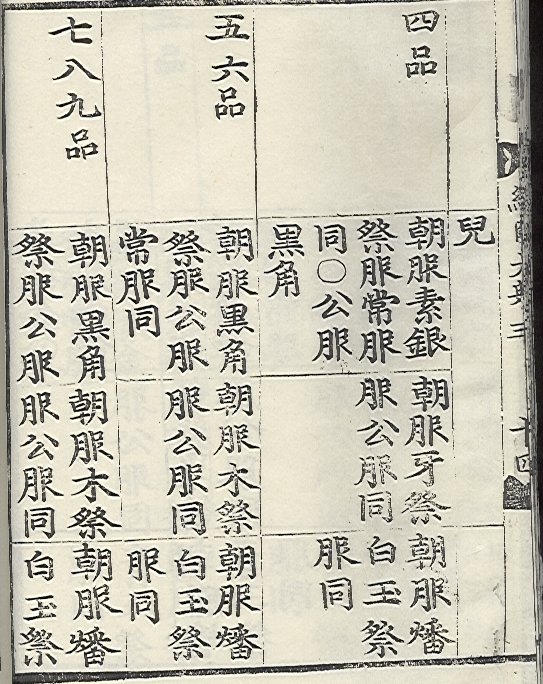 經國大典三
十四
兒
四品
朝服素銀
祭服常服
同○公服
黑角
朝服牙祭
服公服同
朝服燔
白玉祭
服同
五六品
朝服黑角
祭服公服
常服同
朝服木祭
服公服同
朝服燔
白玉祭
服同
七八九品
朝服黑角
祭服公服
朝服木祭
服公服同
朝服燔
白玉祭